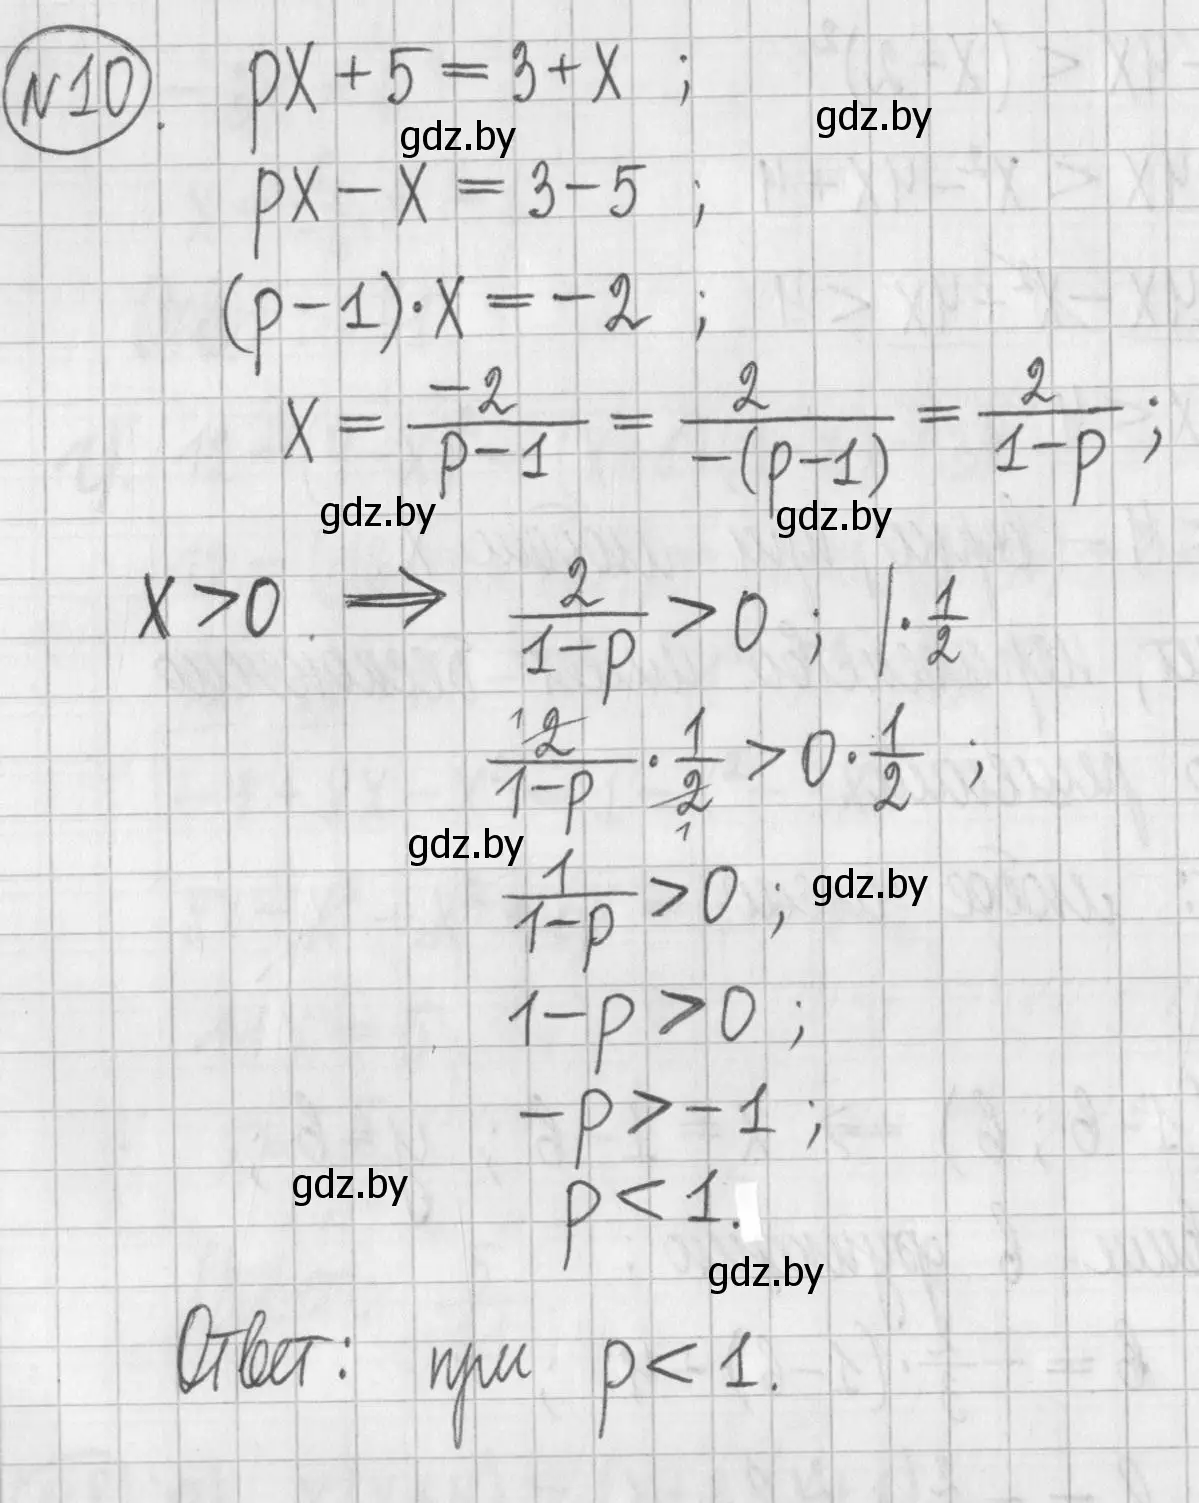 №10. px + 5 = 3 + x ;
gdz.by gdz.by
px − x = 3 − 5 ;
(p − 1) · x = −2 ;
x = −2/(p − 1) = 2/(−(p − 1)) = 2/(1 − p) ;
gdz.by gdz.by
x > 0. ⇒ 2/(1 − p) > 0 ; | · 1/2
2/(1 − p) · 1/2 > 0 · 1/2 ;
gdz.by
1/(1 − p) > 0 ; gdz.by
1 − p > 0 ;
−p > −1 ;
gdz.by
p < 1.
gdz.by
Ответ: при p < 1.